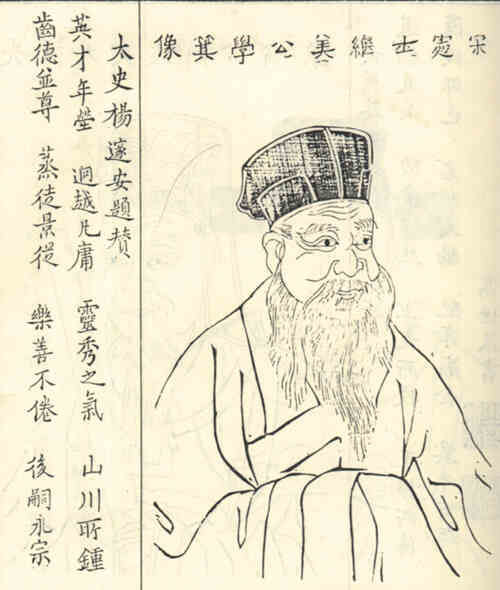 宋憲士繼美公學箕像
太史楊邃安題贊
英才年瑩 迥越凡庸 靈秀之氣 山川所鍾
齒德並尊 蒸徒景從 樂善不倦 後嗣永宗